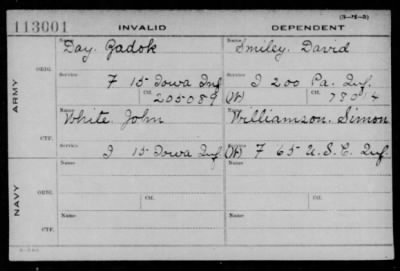 (3-75-3)
113601 INVALID DEPENDENT
Name Name
Day. Zadok Smiley. David
ORIG. Service Service
F 15 Iowa Inf I 200 Pa. Inf.
Ctf. 205089 (W) Ctf.
ARMY
Name Name
White. John Williamson. Simon
CTF. Service Service
I 15 Iowa Inf (W) F 65 U.S.C. Inf
Name Ctf. Name Ctf.
NAVY ORIG.
Name Name
CTF.